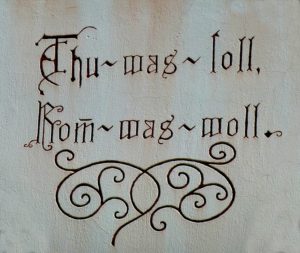 Thu~was~soll,
Kom̅~was~woll.